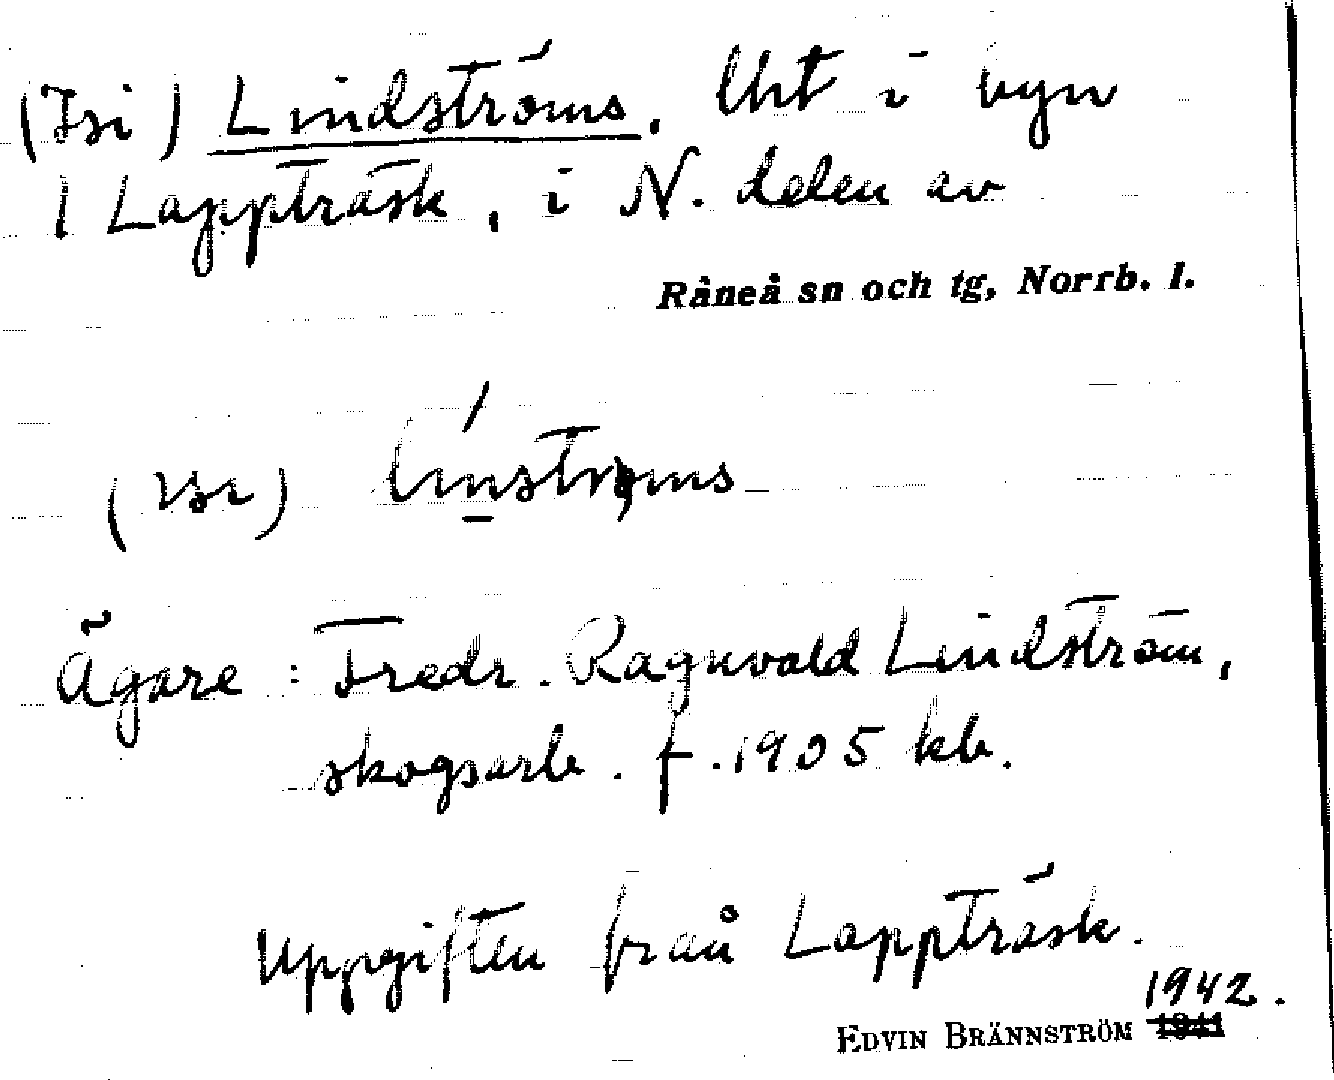 (Isi) Lindströms. Uht i byn
1 Lappträsk, i N. delen av
Råneå sn och tg, Norrb. l.
(ısı)
Ägare : Fredr. Ragnvald Lindström,
skogsarb. f. 1905 kb.
Uppgiften från Lappträsk.
1942.
EDVIN BRÄNNSTRÖM 1941